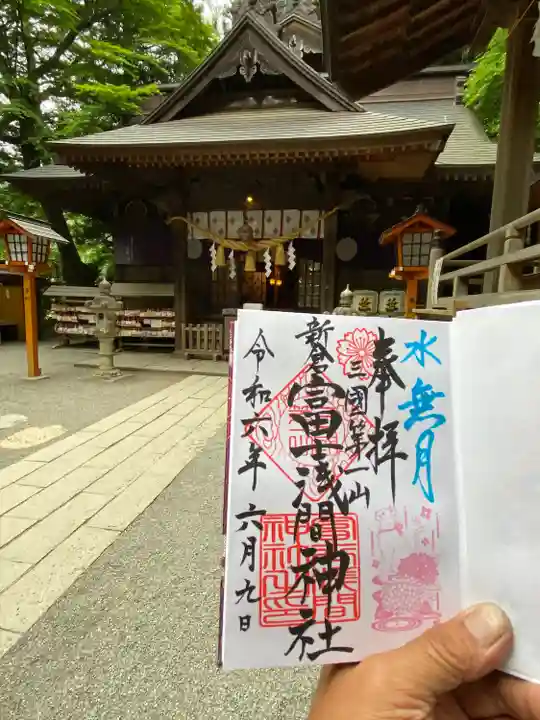 水無月
奉拝
三國第一山
新倉富士浅間神社
令和六年六月九日